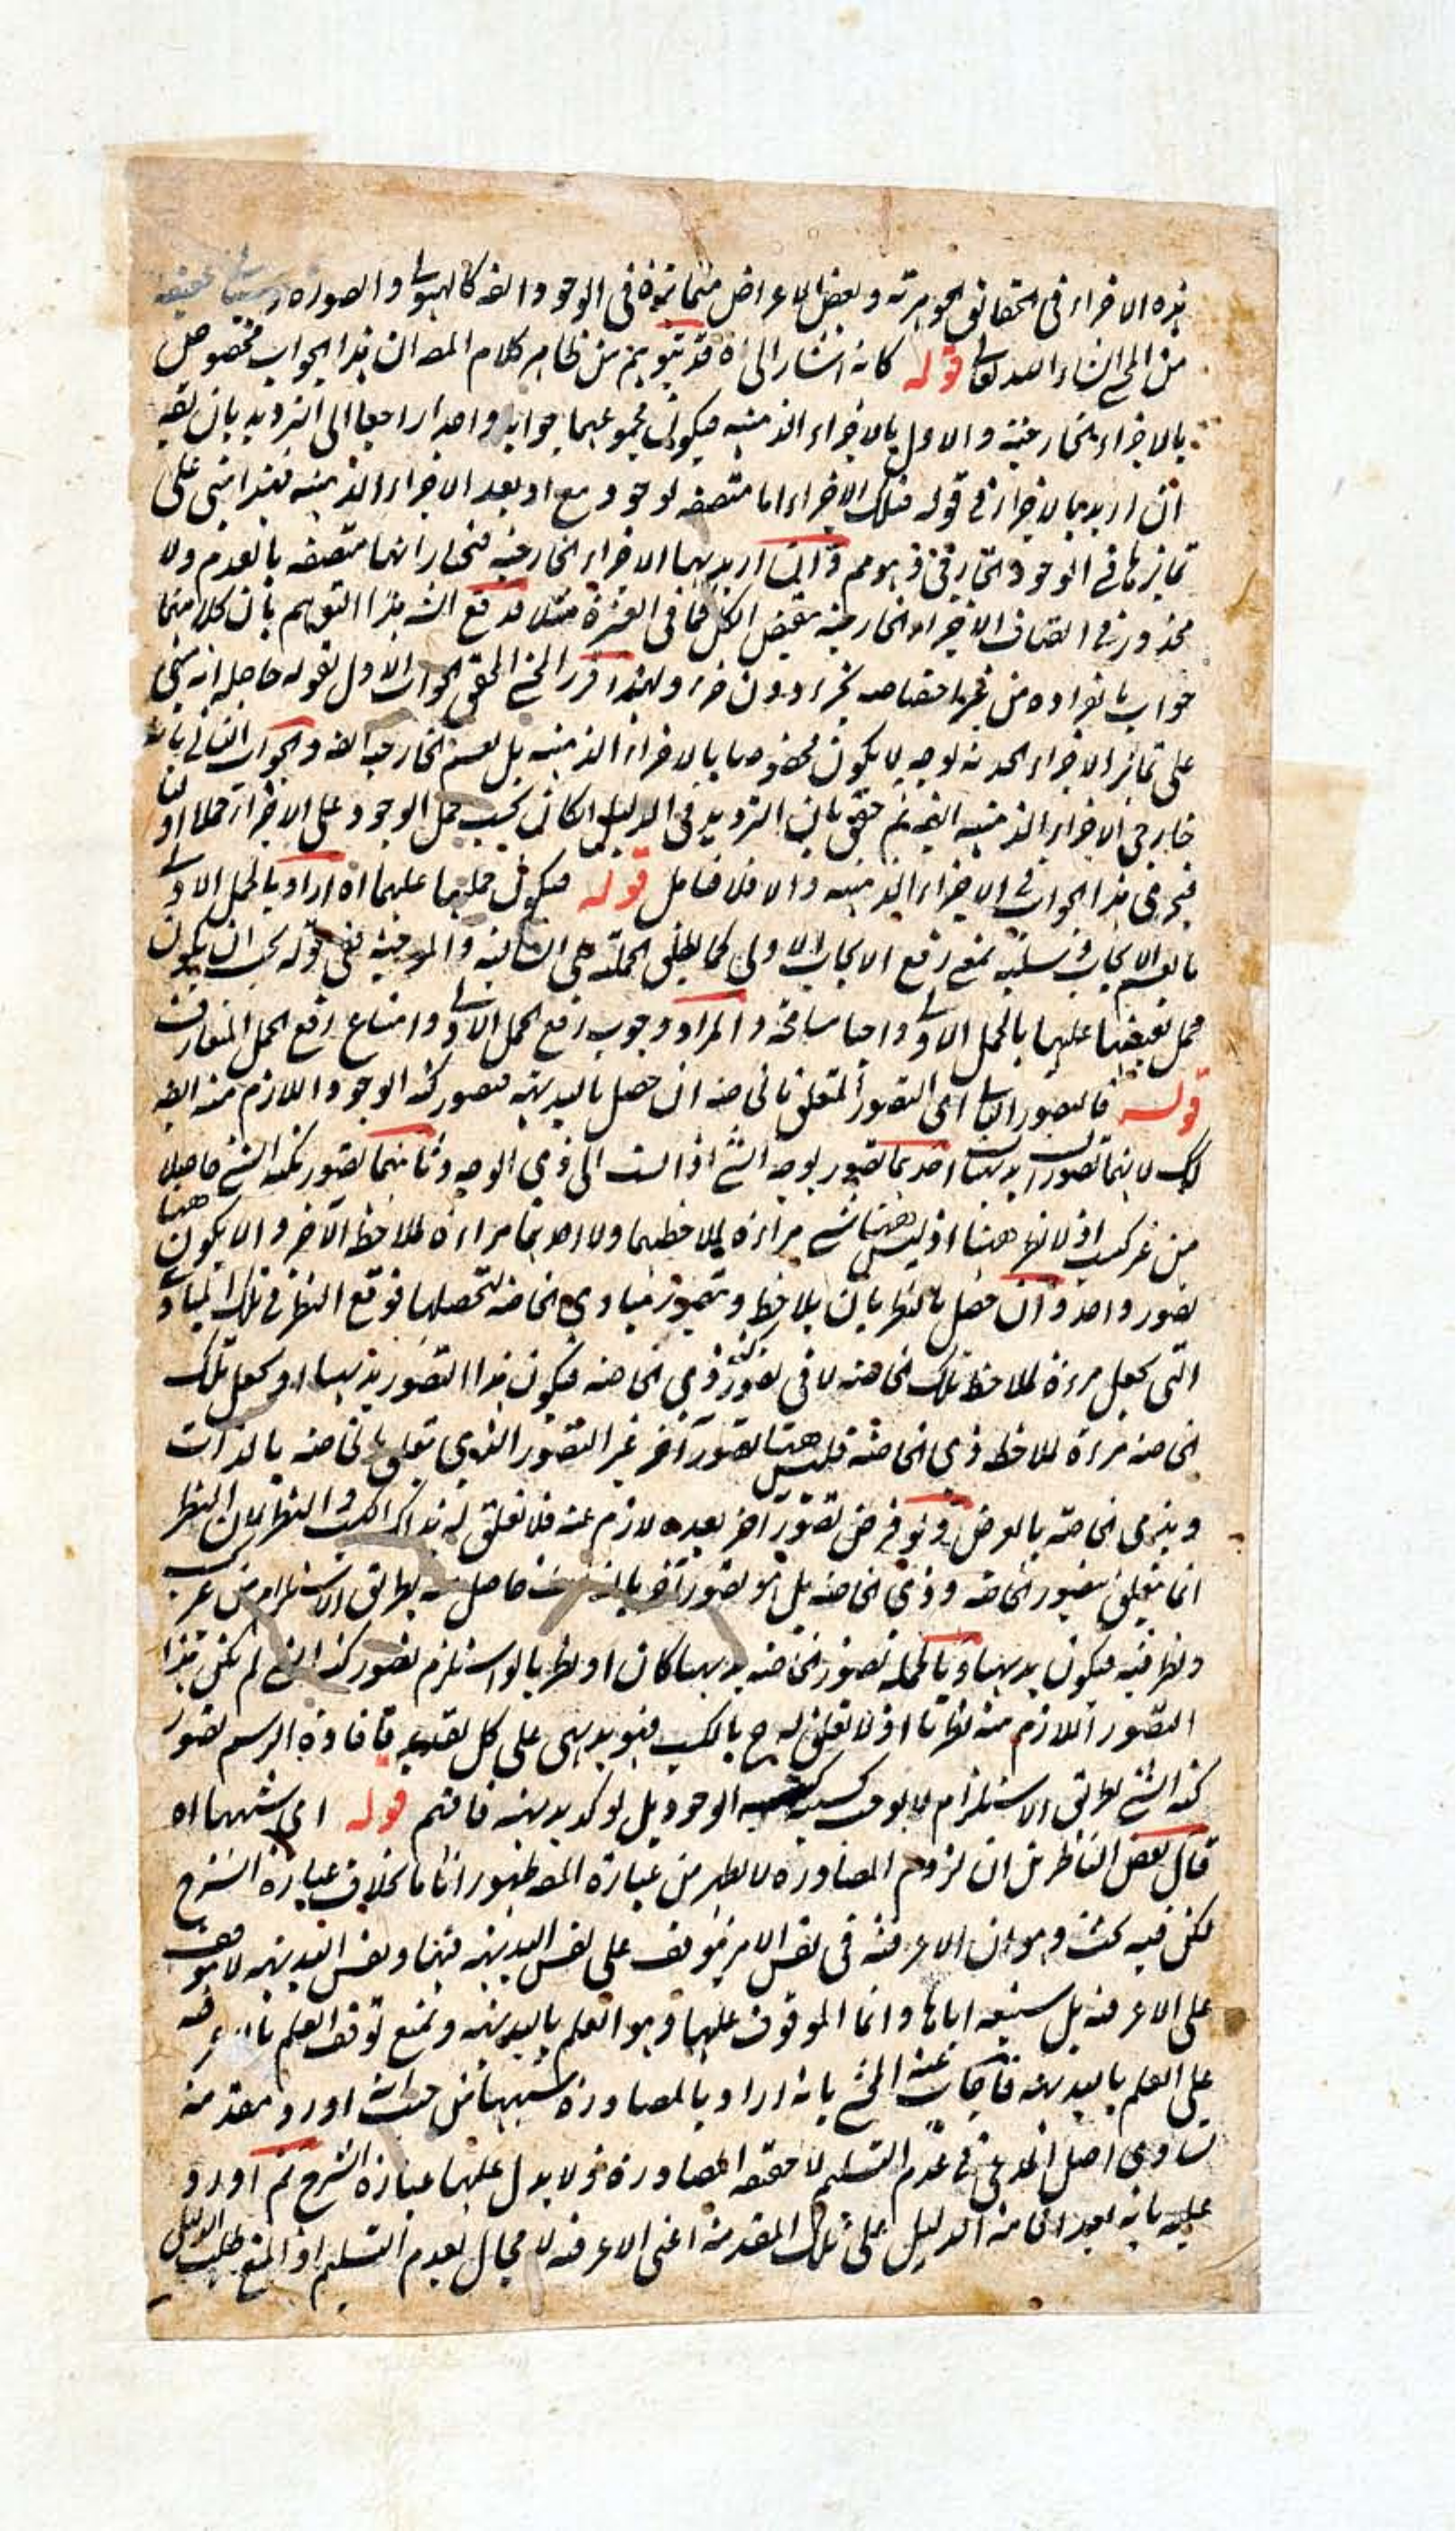 هذه الاجزاء فى الحقائق الجوهرية وبعض الاعراض متمايزة فى الوجود ايضا كالهيولى والصورة
من المحشى ان شاء الله تعالى قوله كانه اشار الى اه قد يتوهم من ظاهر كلام المصـ ان هذا الجواب مخصوص
بالاجزاء الخارجية والاول بالاجزاء الذهنية فيكون مجموعهما جوابا واحدا راجعا الى الترديد بان يقـ
ان اريد بالاجزاء فى قوله فتلك الاجزاء اما متصفة بوجود مع او بعد الاجزاء الذهنية فهذا مبنى على
تمايزها فى الوجود الخارجى فهو مم وان اريد بها الاجزاء الخارجية فنختار انها متصفة بالعدم ولا
محذور فى اتصاف الاجزاء الخارجية بنقيض الكل كما فى العشرة مثلا فدفع الشـ هذا التوهم بان كلا منهما
جواب بانفراده من غير اختصاصه بجزء دون جزء ولهذا قرر المحشى المحقق الجواب الاول بقوله حاصله انه مبنى
على تمايز الاجزاء الحدية لوجه لا يكون مخصوصا بالاجزاء الذهنية بل يعم الخارجية ايضا والجواب الثانى بانه
جار فى الاجزاء الذهنية ايضا ثم حقق بان الترديد فى الدليل ان كان بحسب حمل الوجود على الاجزاء حملا اوليا
فيجرى هذا الجواب فى الاجزاء الذهنية والا فلا فتامل قوله فيكون حملها عليهما اه اراد بالحمل الاولى
ما يعم الايجاب وسلبه بمعنى رفع الايجاب الاولى كما يطلق الحملية على السالبة والموجبة ففى قوله يجب ان يكون
حمل نقيضها عليها بالحمل الاولى واجبا مسامحة والمراد وجوب رفع الحمل الاولى وامتناع رفع الحمل المتعارف
قوله فالتصور الثانى اى التصور المتعلق بالخاصة ان حصل بالبديهة فتصور كنه الوجود اللازم منه ايضا
كك لانهما تصوران بديهيان احدهما تصور بوجه الشئ اذا نسب الى ذى الوجه وثانيهما تصور بكنه الشئ حاصلا
من غير كسب اذ لا نظر ههنا اذ ليس ههنا شئ مراءة لملاحظتهما ولا احدهما مراءة لملاحظة الآخر والا يكون ههنا
تصور واحد وان حصل بالنظر بان يلاحظ وتصور مبادى الخاصة لتحصيلها فوقع النظر فى تلك المبادى
التى يجعل مرءة لملاحظة تلك الخاصة لا فى تصور كنه ذى الخاصة فيكون هذا التصور بديهيا او يجعل تلك
الخاصة مرءة لملاحظة ذى الخاصة فليس ههنا تصور آخر غير التصور الذى تعلق بالخاصة بالذات
وبذى الخاصة بالعرض ولو فرض تصور آخر بعده لازم عنه فلا تعلق له بذاك الكسب والنظر لان النظر
انما يتعلق بتصور الخاصة وذى الخاصة بل هو تصور آخر بالذات حاصل منه بطريق الاستلزام من غير كسب
ونظر فيه فيكون بديهيا وبالجملة تصور الخاصة بديهيا كان او نظريا لو استلزم تصور كنه الشئ لم يكن هذا
التصور اللازم منه نظريا اذ لا تعلق له ح بالكسب فهو بديهى على كل تقدير فافادة الرسم تصور
كنه الشئ بطريق الاستلزام لا يوجب كسبية الوجود بل يؤكد بديهيته فافهم قوله اى شبهها اه
قال بعض الناظرين ان لزوم المصادرة لا يظهر من عبارة المصـ ظهورا تاما بخلاف عبارة الشرح
لكن فيه بحث وهو ان الاعرفية فى نفس الامر يتوقف على نفس البديهية فيهما ونفس البديهية لا يتوقف
على الاعرفية بل يستتبعه اياها وانما الموقوف عليها هو العلم بالبديهية ونمنع توقف العلم بالاعرفية
على العلم بالبديهية فاجاب عنه المحشى بانه اراد بالمصادرة شبيهها من حيث انه اورد مقدمة
تساوى اصل المدعى فى عدم التسليم لا حقيقة المصادرة ولا يدل عليها عبارة الشرح ثم اورد
عليه بانه بعد اقامة الدليل على تلك المقدمة اعنى الاعرفية لا مجال لعدم التسليم اذ المنع طلب الدليل